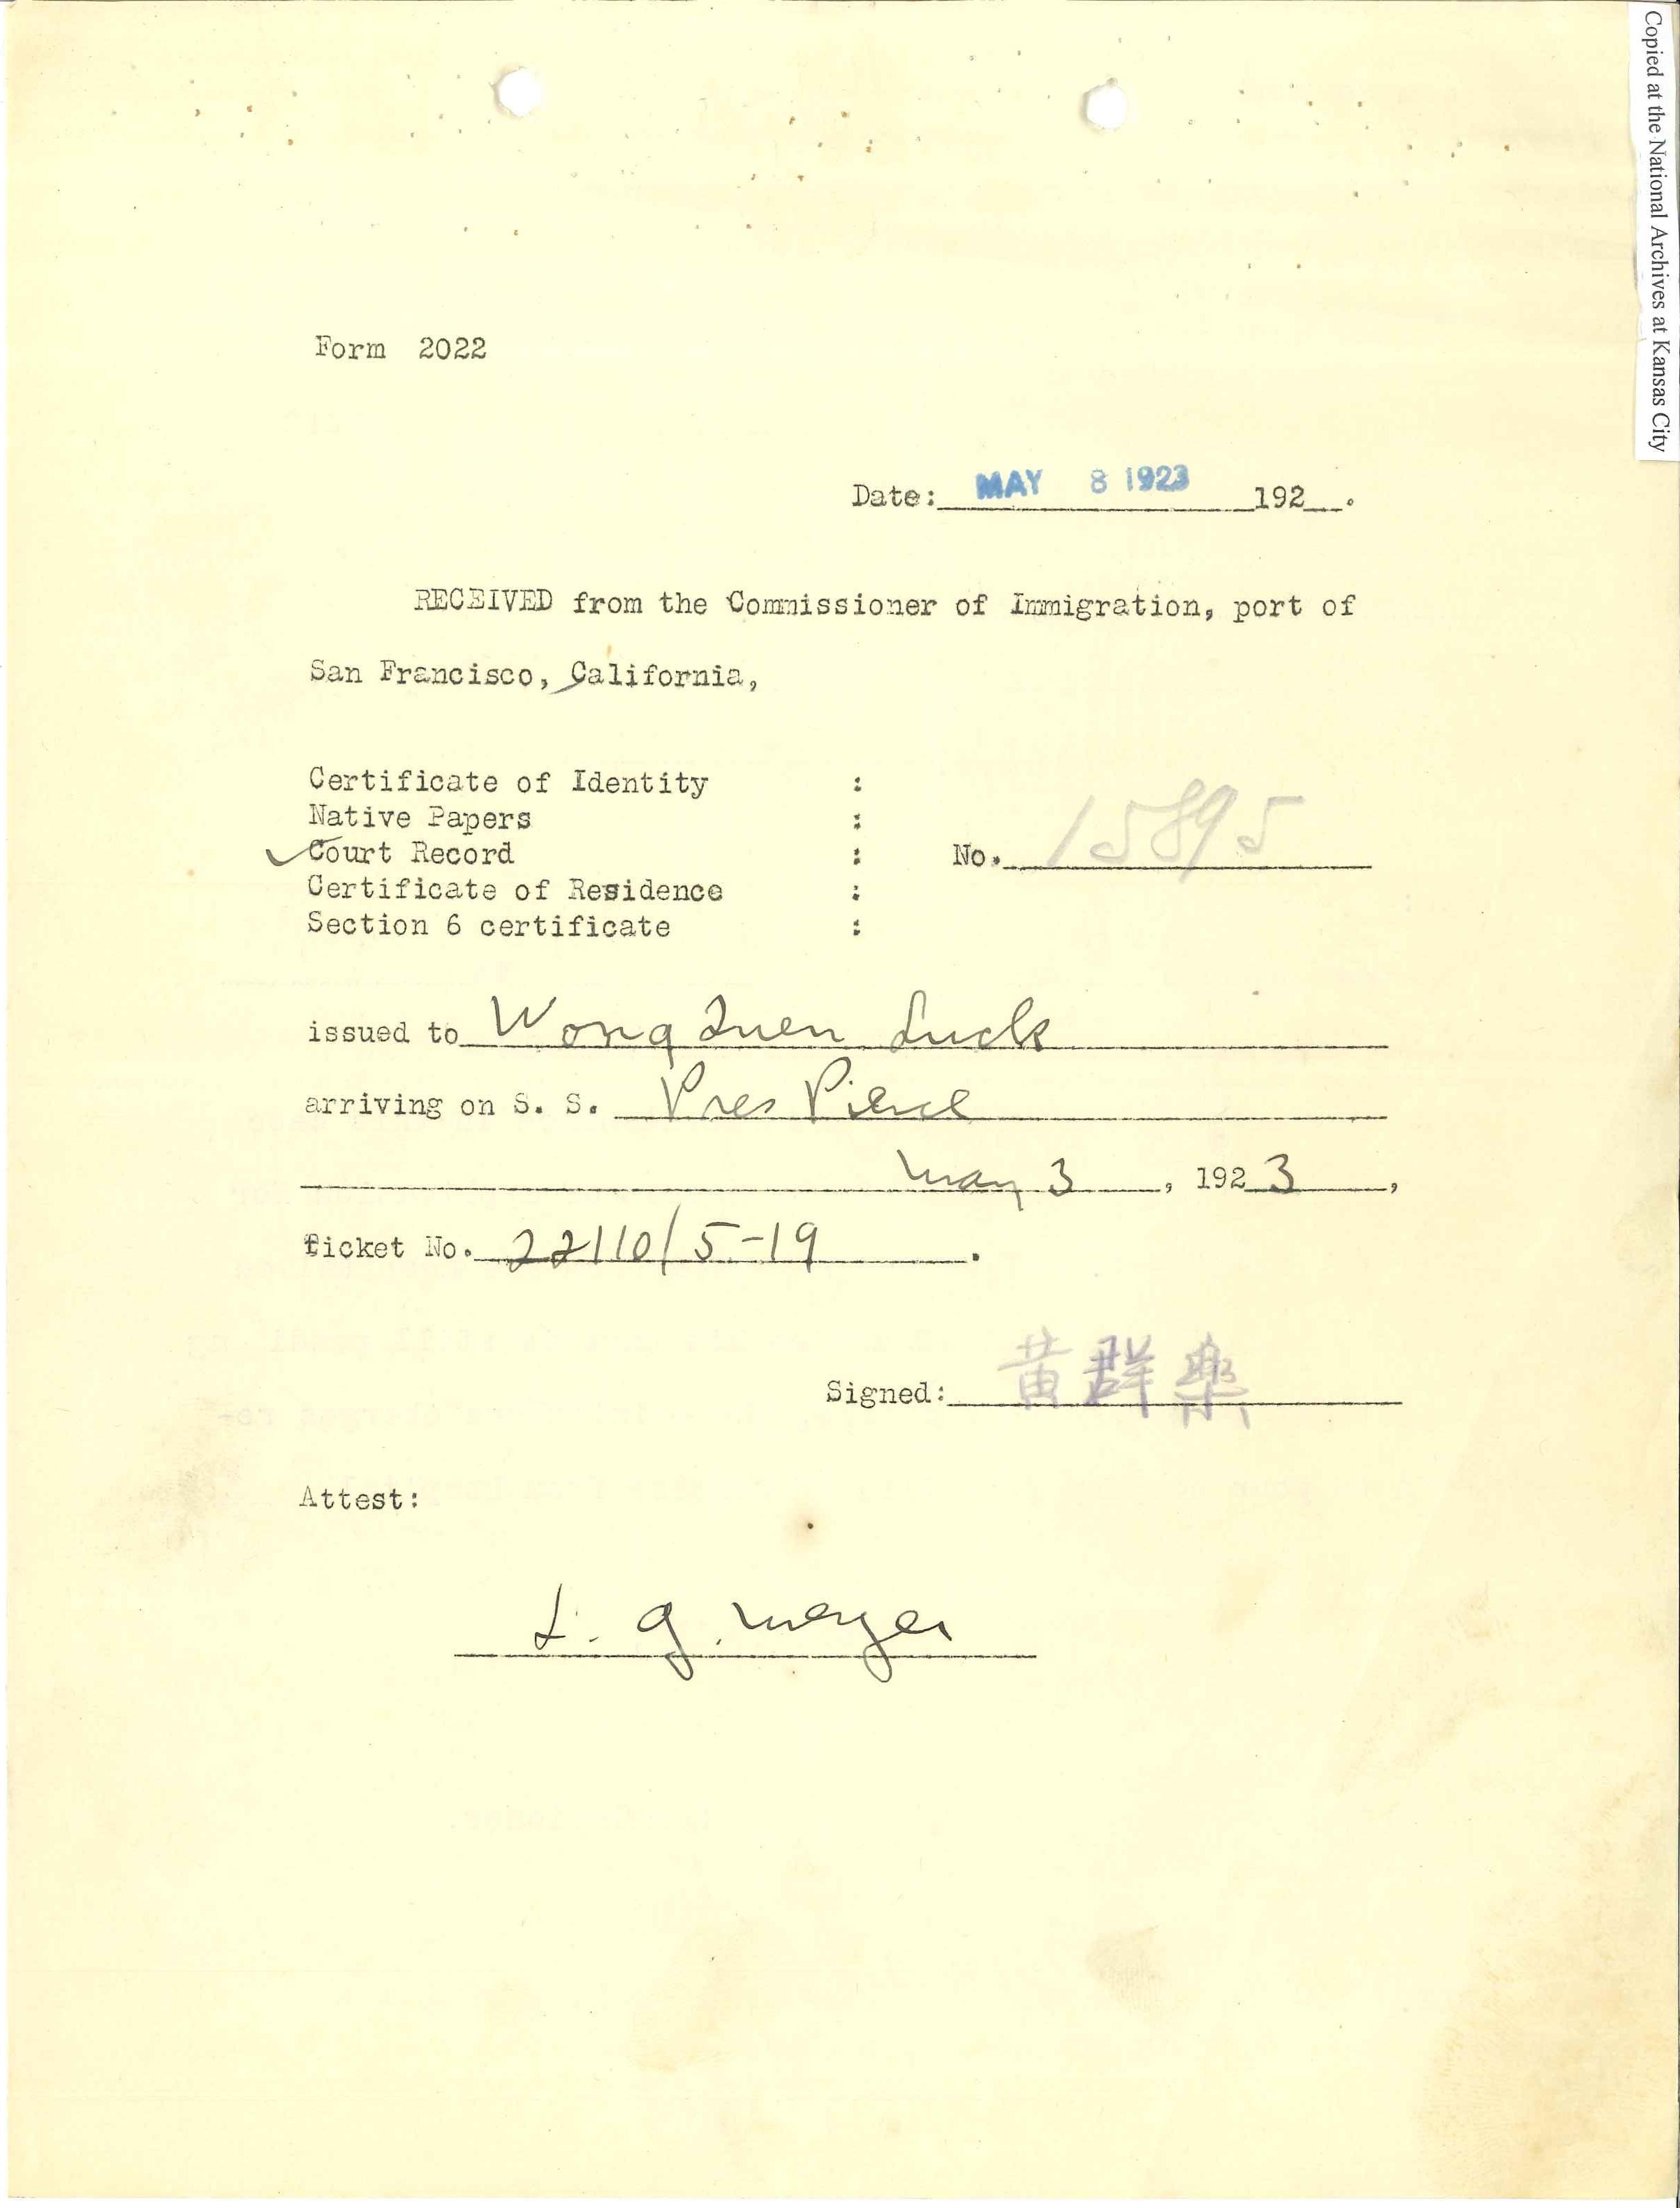 Copied at the National Archives at Kansas City
Form 2022
Date: MAY 8 1923 192__.
RECEIVED from the Commissioner of Immigration, port of
San Francisco, California,
Certificate of Identity :
Native Papers :
✓ Court Record : No. 15895
Certificate of Residence :
Section 6 certificate :
issued to Wong Quen Luck
arriving on S. S. Pres Pierce
May 3, 1923,
ticket No. 22110/5-19.
Signed: 黄群樂
Attest:
L. G. Meyer